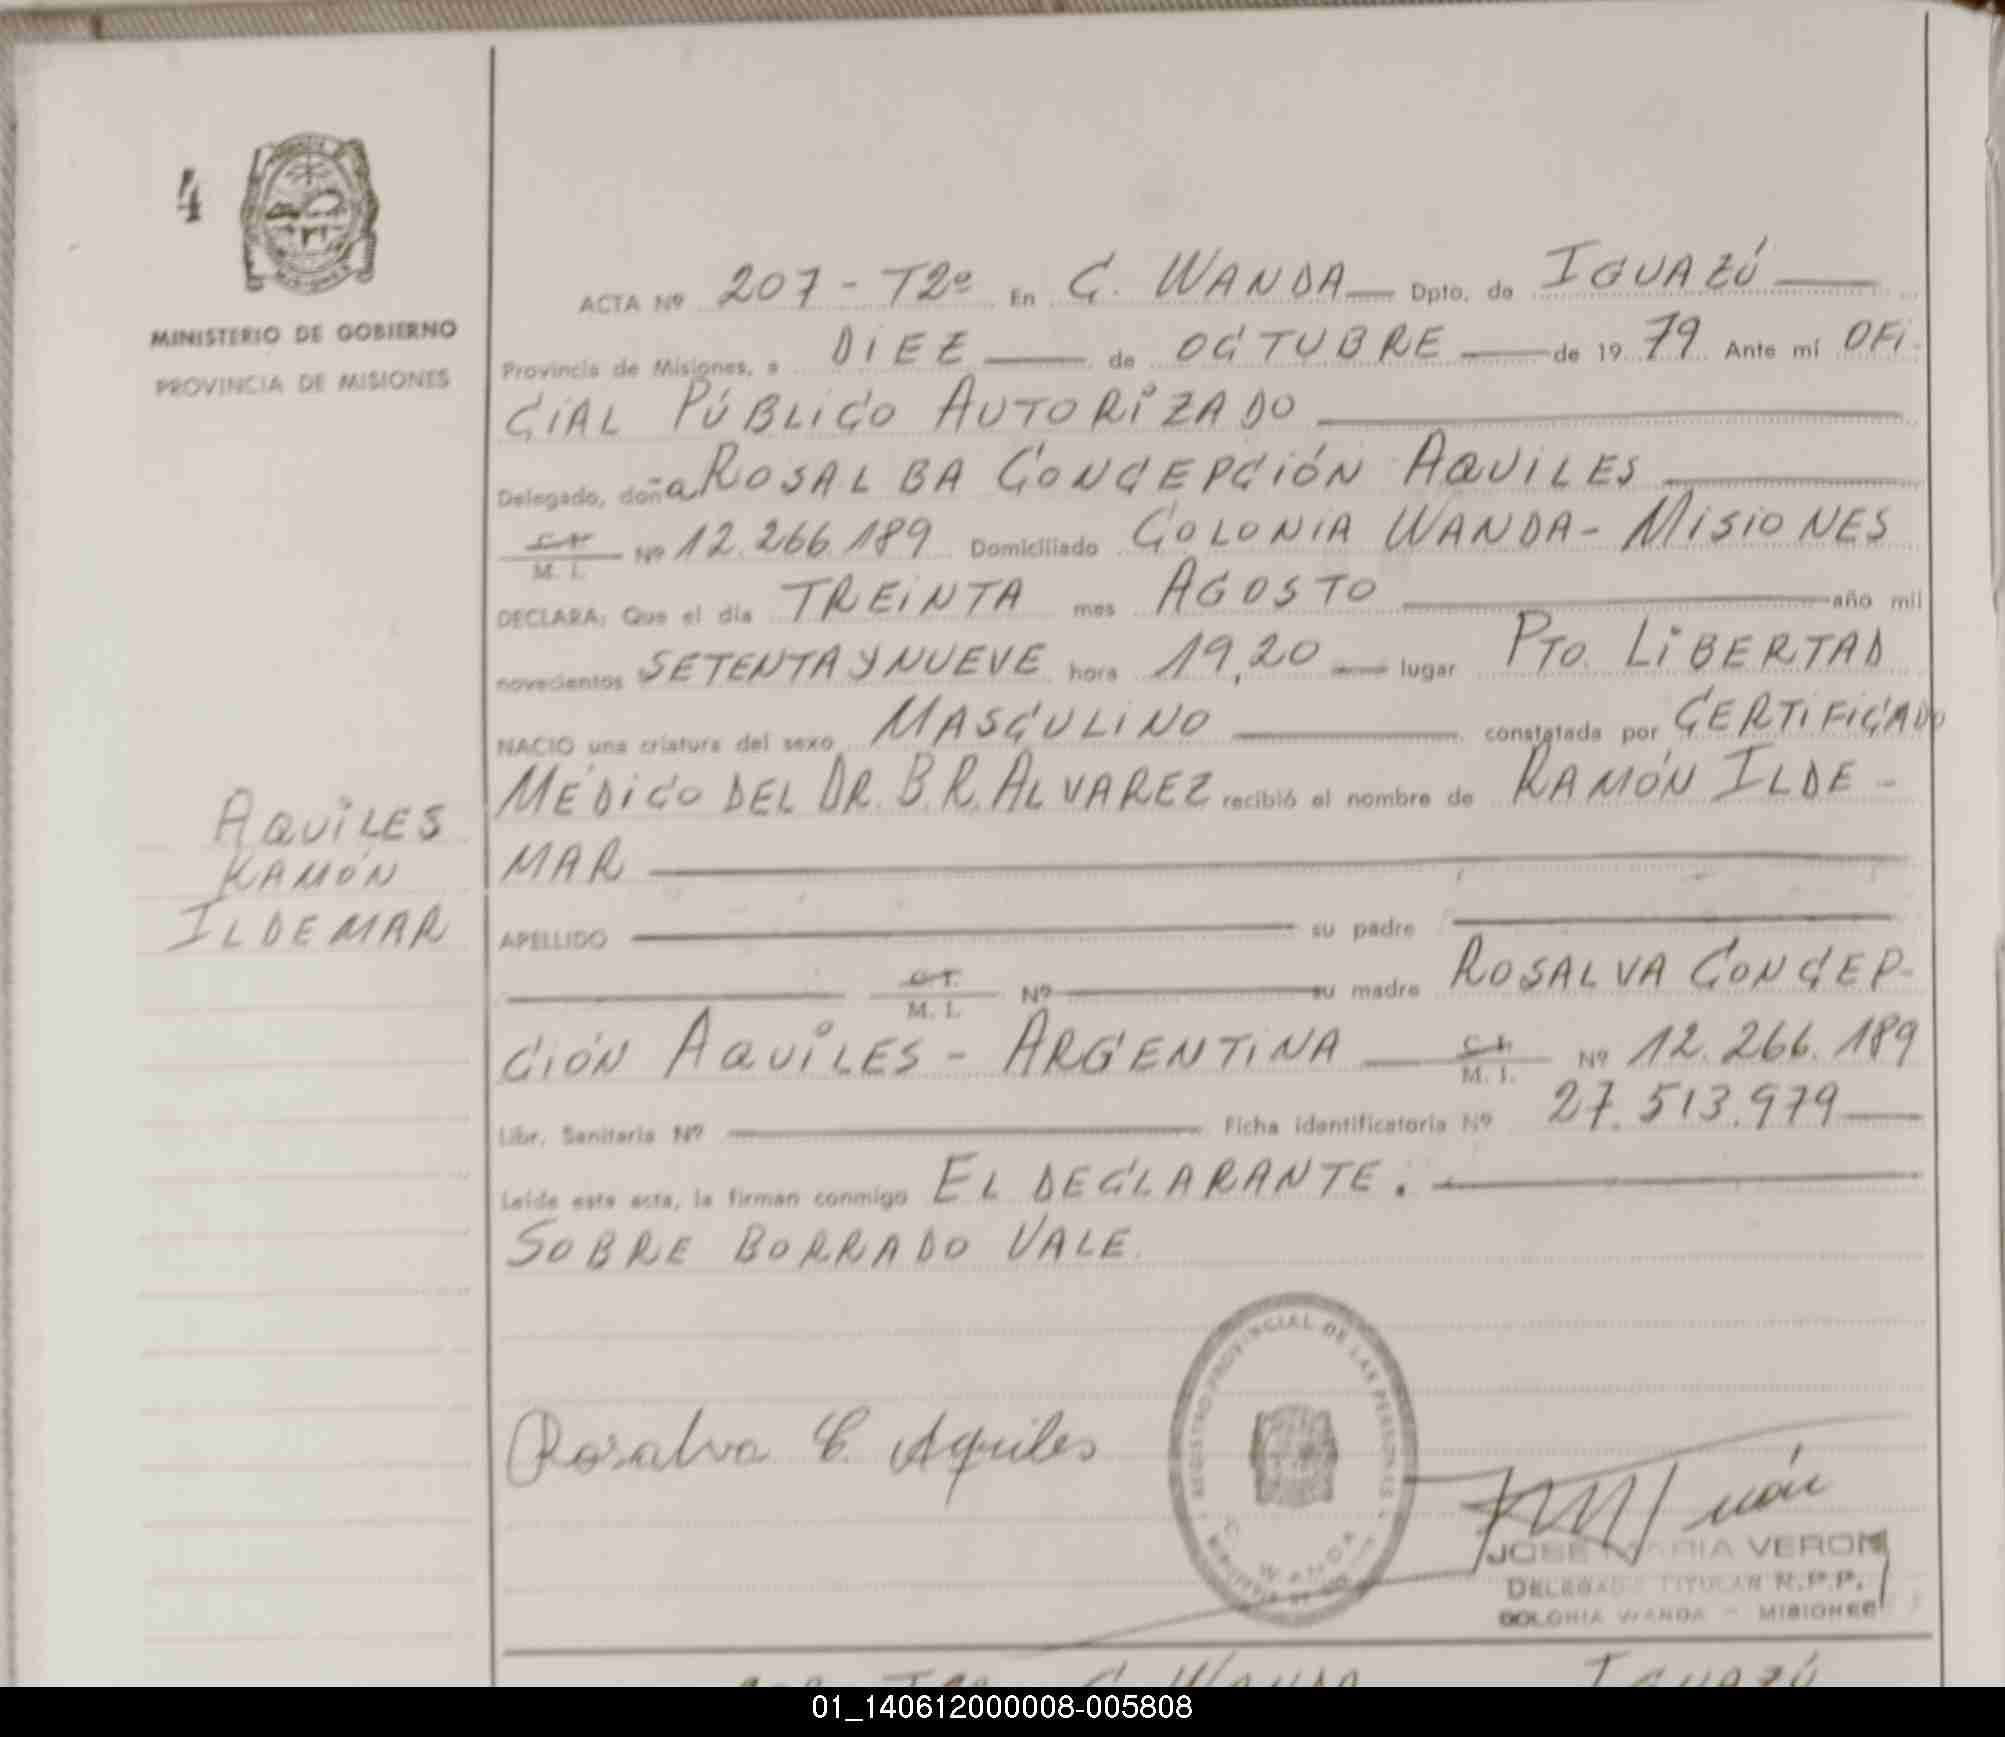 4
MINISTERIO DE GOBIERNO
PROVINCIA DE MISIONES
ACTA Nº 207 - T2º En C. WANDA Dpto. de IGUAZÚ
Provincia de Misiones, a DIEZ de OCTUBRE de 1979 Ante mí OFI-
CIAL PÚBLICO AUTORIZADO
Delegado, doña ROSALBA CONCEPCIÓN AQUILES
C. I. M. I. Nº 12.266.189 Domiciliado COLONIA WANDA - MISIONES
DECLARA: Que el día TREINTA mes AGOSTO año mil
novecientos SETENTA Y NUEVE hora 19,20 lugar PTO. LIBERTAD
NACIO una criatura del sexo MASCULINO constatada por CERTIFICADO
MÉDICO DEL DR. B.R. ALVAREZ recibió el nombre de RAMÓN ILDE-
MAR
AQUILES
RAMÓN
ILDEMAR
APELLIDO su padre
M. I. Nº su madre ROSALVA CONCEP-
CIÓN AQUILES - ARGENTINA C. I. M. I. Nº 12.266.189
Libr. Sanitaria Nº Ficha identificatoria Nº 27.513.979
Leída esta acta, la firman conmigo EL DECLARANTE.
SOBRE BORRADO VALE.
Rosalva C. Aquiles
REGISTRO PROVINCIAL DE LAS PERSONAS
C. WANDA
JOSE MARIA VERON
DELEGADO TITULAR R.P.P.
COLONIA WANDA - MISIONES
C. WANDA IGUAZÚ
01_140612000008-005808